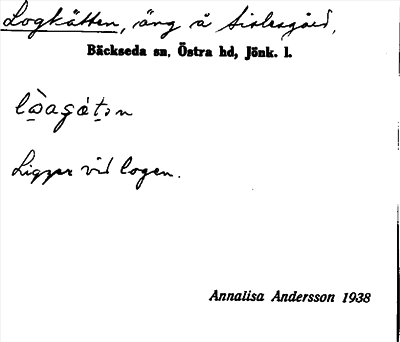 Logkätten, äng å
Bäckseda sn. Östra hd, Jönk. l.
Ligger vid logen.
Annalisa Andersson 1938